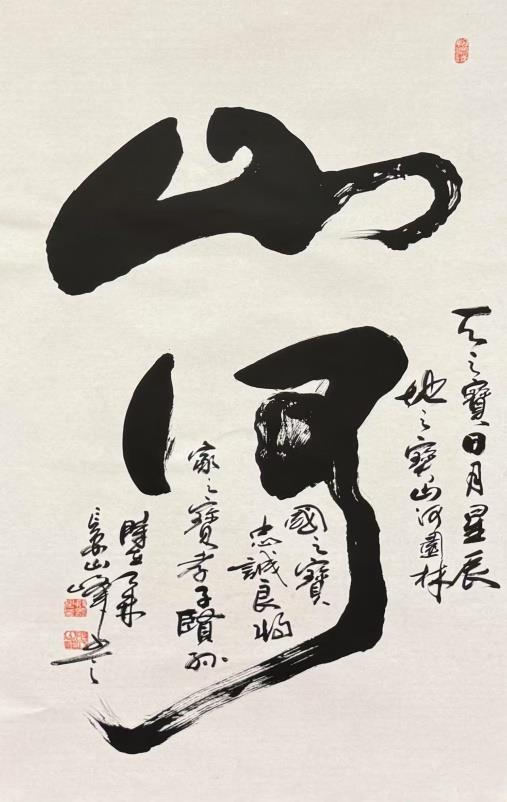 山河
天之寶日月星辰
地之寶山河園林
國之寶
忠誠良將
家之寶孝子賢孫
山峰書